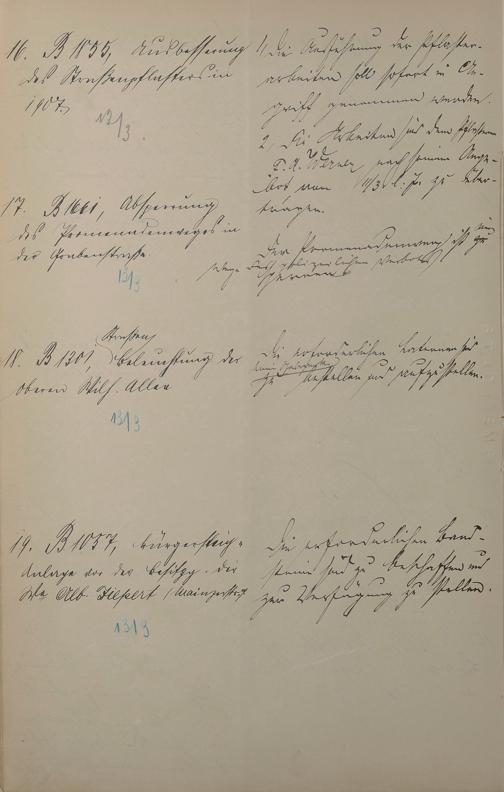 16. B 1835, Ausbesserung
des Straßenpflasters in
1907.
13/3.
1, Die Ausführung der Pflaster-
arbeiten soll sofort in An-
griff genommen werden.
2, Die Arbeiten sind dem Pflasterer
F. A. Werner, nach seinem Ange-
bot vom 11/3. l. J. zu über-
tragen.
17. B 1661, Absperrung
des Promenadenweges in
der Grabenstraße.
13/3
Der Promenadenweg ist
wege des polizeilichen Verbots zu
sperren.
18. B 1301, Straßen
beleuchtung der
oberen Wilh. Allee
13/3
Die erforderlichen Laternen sind
zu bestellen und aufzustellen.
19. B 1057, Bürgersteig-
Anlage vor der Besitzg. der
Ww Alb. Tiefert (Mainzerstr.
13/3
Die erforderlichen Band-
steine sind zu beschaffen und
zur Verfügung zu stellen.